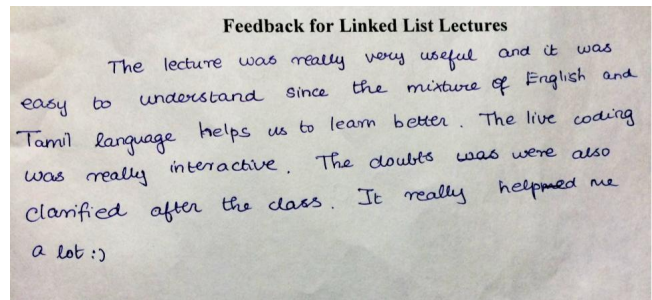 Feedback for Linked List Lectures
The lecture was really very useful and it was
easy to understand since the mixture of English and
Tamil language helps us to learn better. The live coding
was really interactive. The doubts was were also
clarified after the class. It really helpmed me
a lot :)